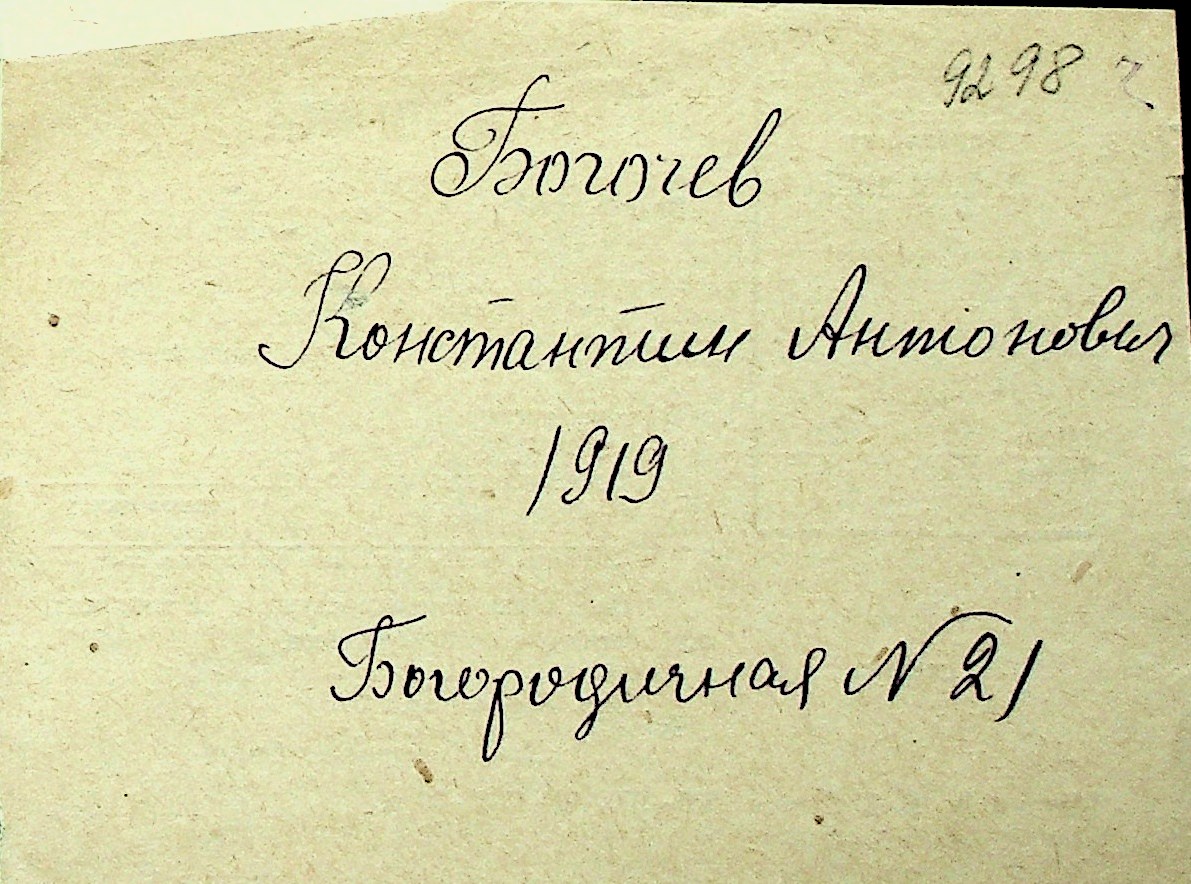 9298 ч.
Богочев
Константин Антонович
1919
Богородичная № 21